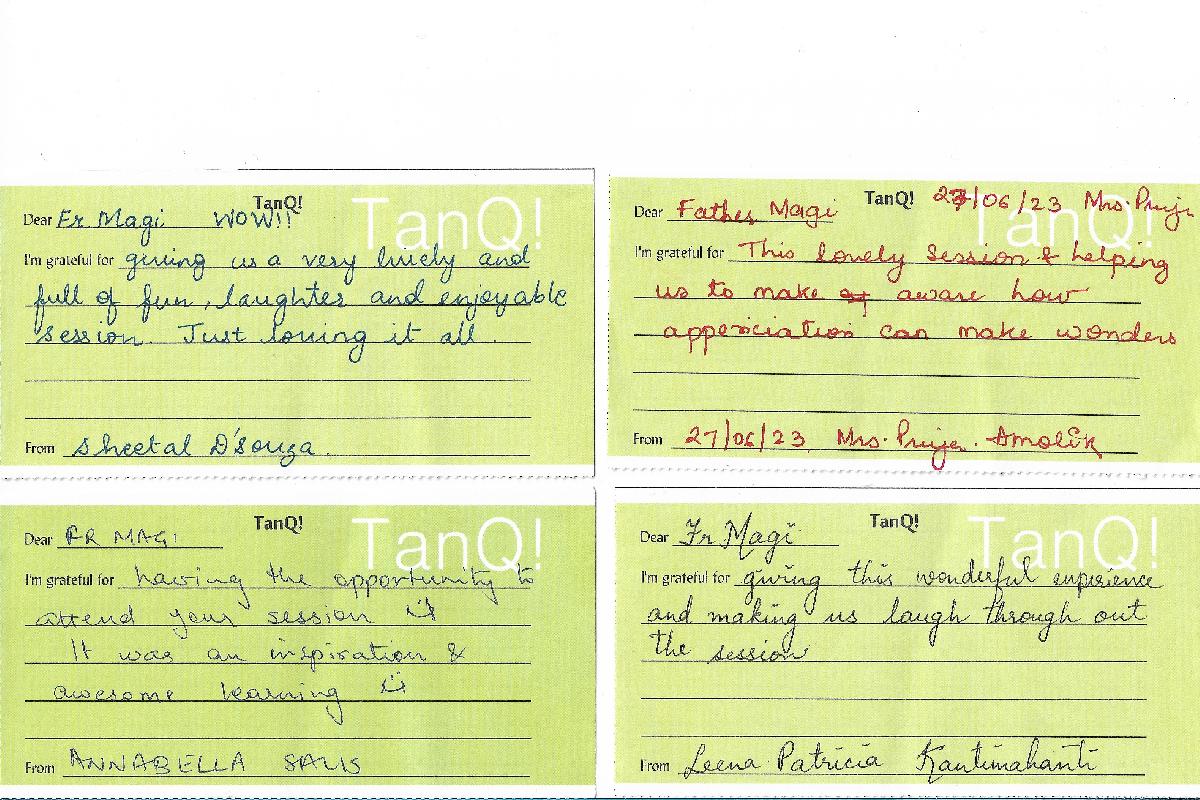 TanQ!
TanQ!
Dear Fr. Magi WOW!!
I'm grateful for giving us a very lively and
full of fun, laughter and enjoyable
session. Just loving it all.
From Sheetal D'souza.
TanQ! 27/06/23 Mrs. Puja
TanQ!
Dear Father Magi
I'm grateful for This lovely Session & helping
us to make of aware how
appericiation can make wonders
From 27/06/23 Mrs. Puja. Amolik
TanQ!
TanQ!
Dear FR MAGI
I'm grateful for having the opportunity to
attend your session
It was an inspiration &
awesome learning
From ANNABELLA SALIS
TanQ!
TanQ!
Dear Fr Magi
I'm grateful for giving this wonderful experience
and making us laugh through out
the session
From Leena Patricia Kantimahanti